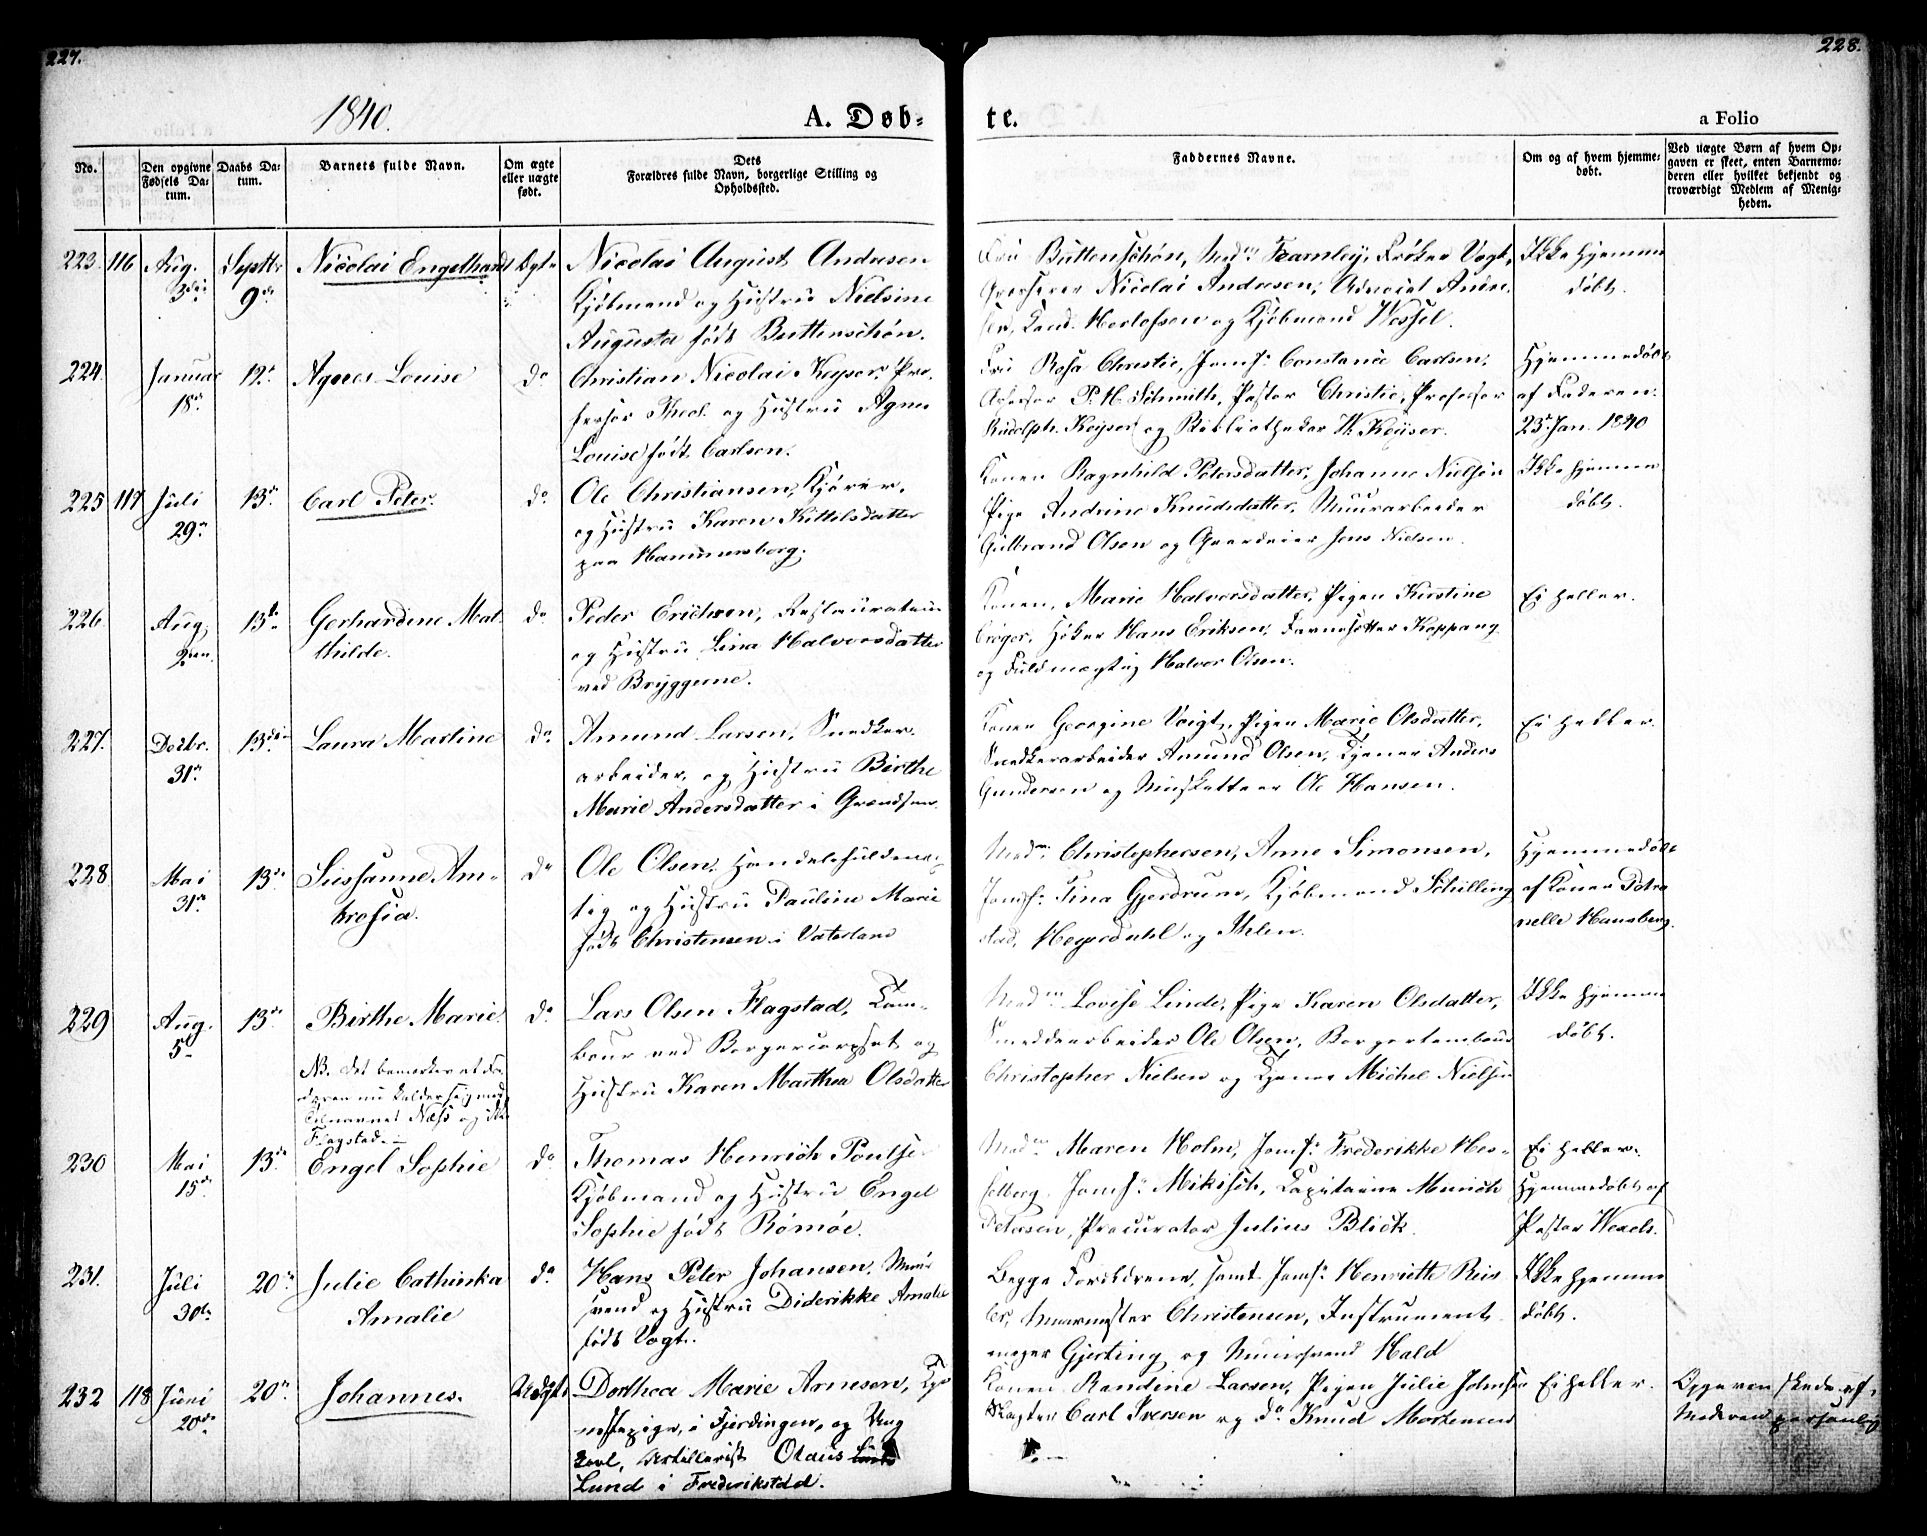 227.
228.
1840.
A. Døb-
te.
a Folio
No.
Den opgivne Fødsels Datum.
Daabs Datum.
Barnets fulde Navn.
Om ægte eller uægte født.
Dets Forældres fulde Navn, borgerlige Stilling og Opholdssted.
Faddernes Navne.
Om og af hvem hjemmedøbt.
Ved uægte Børn af hvem Opgaven er skeet, enten Barnemoderen eller hvilket bekjendt og troværdigt Medlem af Menigheden.
223. 116 Aug. 3die Septbr 9de Nicolai Engelhardt Ægte
Nicolai August Andresen
Kjøbmand og Hustru Nielsine
Augusta født Buttenschøn.
Fru Buttenschøn, Mad. Fearnley, Frøken Vogt,
Grosserer Nicolai Andresen, Advocat Andre
sen, Cand. Herlofsen og Kjøbmand Wessel.
Ikke hjemme
døbt.
224. Januar 18de 12te Agnes Louise do
Christian Nicolai Keyser, Pro-
fessor Theol. og Hustru Agnes
Louise født Carlsen.
Fru Rosa Christie, Jomf. Constance Carlsen,
Assessor P. H. Schmith, Pastor Christie, Professor
Rudolph Keyser og Bibliothekar W. Keyser.
Hjemmedøbt
af Faderen
23de Jan. 1840
225 117 Juli 29de 13de Carl Peter. do
Ole Christiansen, Kjører,
og Hustru Karen Kittilsdatter
paa Hammersborg.
Konen Ragnhild Petersdatter, Johanne Nielsen
Pige Andrine Knudsdatter, Muurarbeider
Gulbrand Olsen og Gaardeier Jens Nielsen.
Ikke hjemme
døbt.
226 Aug. 2den 13de Gerhardine Mat
hilde.
do
Peder Erichsen, Restaurateur
og Hustru Lina Halvorsdatter
ved Bryggerne.
Konen Marie Halvorsdatter, Pigen Kirstine
Brøger, Høker Hans Eriksen, Farvesvetter Koppang
og Fuldmægtig Halvor Olsen.
Ei heller.
227. Decbr. 31te 13de Laura Martine do
Amund Larsen, Snedker-
arbeider, og Hustru Birthe
Marie Andersdatter i Grændsen.
Konen Georgine Voigt, Pigen Marie Olsdatter,
Snedkerarbeider Amund Olsen, Tjener Anders
Gundersen og Muskatteer Ole Hansen.
Ei heller.
228 Mai 31te 13de Sussanne Am-
brosia.
do
Ole Olsen, Handelsfuldmæg-
tig og Hustru Pauline Marie
født Christensen i Vaterland
Mad. Christophersen, Anne Simonsen,
Jomf. Tina Gjerdrum, Kjøbmand Schilling
stad, Heyerdahl og Ihlen.
Hjemmedøbt
af Konen Petro
nelle Hansberg.
229 Aug. 5te 13de Birthe Marie. do
NB. Det bemerkes at Fa-
deren nu kalder sig med
Tilnavnet Næss og ikke
Flagstad.
Lars Olsen Flagstad, Tam-
bour ved Borgercorpset og
Hustru Karen Marthea Olsdatter
Mad. Lovise Linde, Pige Karen Olsdatter,
Smeddearbeider Ole Olsen, Borgertambour
Christopher Nielsen og Tjener Michel Nielsen
Ikke hjemme
døbt.
230 Mai 15de 13de Engel Sophie do
Thomas Henrich
Kjøbmand og Hustru Engel
Sophie født Rømøe.
Mad. Maren Holm, Jomf. Frederikke Hes-
selberg, Jomf. Mikisch, Capitaine Munich
Petersen, Procurator Julius Blick.
Ei heller.
Hjemmedøbt af
Pastor Wexels.
231. Juli 30te 20de Julie Cathinka
Amalie
do
Hans Peter Johansen, Muur
svend og Hustru Diderikke Amalie
født Vogt.
Begge Forældrene, samt Jomf. Henriette
Muurmester Christensen, Instrument
mager Gjerting og Muursvend Hald
Ikke hjemme
døbt.
232 118 Juni 20de 20de Johannes. Uægte
Dorthea Marie Arnesen, Tje
nestepige, i Fjerdingen, og Ung
karl, Artillerist Olaus
Lund i Frederikstad.
Konen Randine Larsen, Pigen Julie Johnsen
Slagter Carl Iversen og do Knud Mortensen
Ei heller.
Opgaven skede af
Moderen personlig